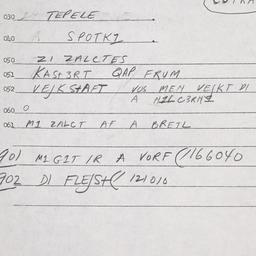 030 TEPELE
040 SPOTKI
050 ZI ZALCTES
051 KASt3RT QAP FRUM
052 VEJKSHAFT VUS MEN VEJKT DI
A
060 O
061 MI ZALCT AF A BRETL
901 MI GIT IR A VORF (/166040
902 DI FLEJSH (/ 121010